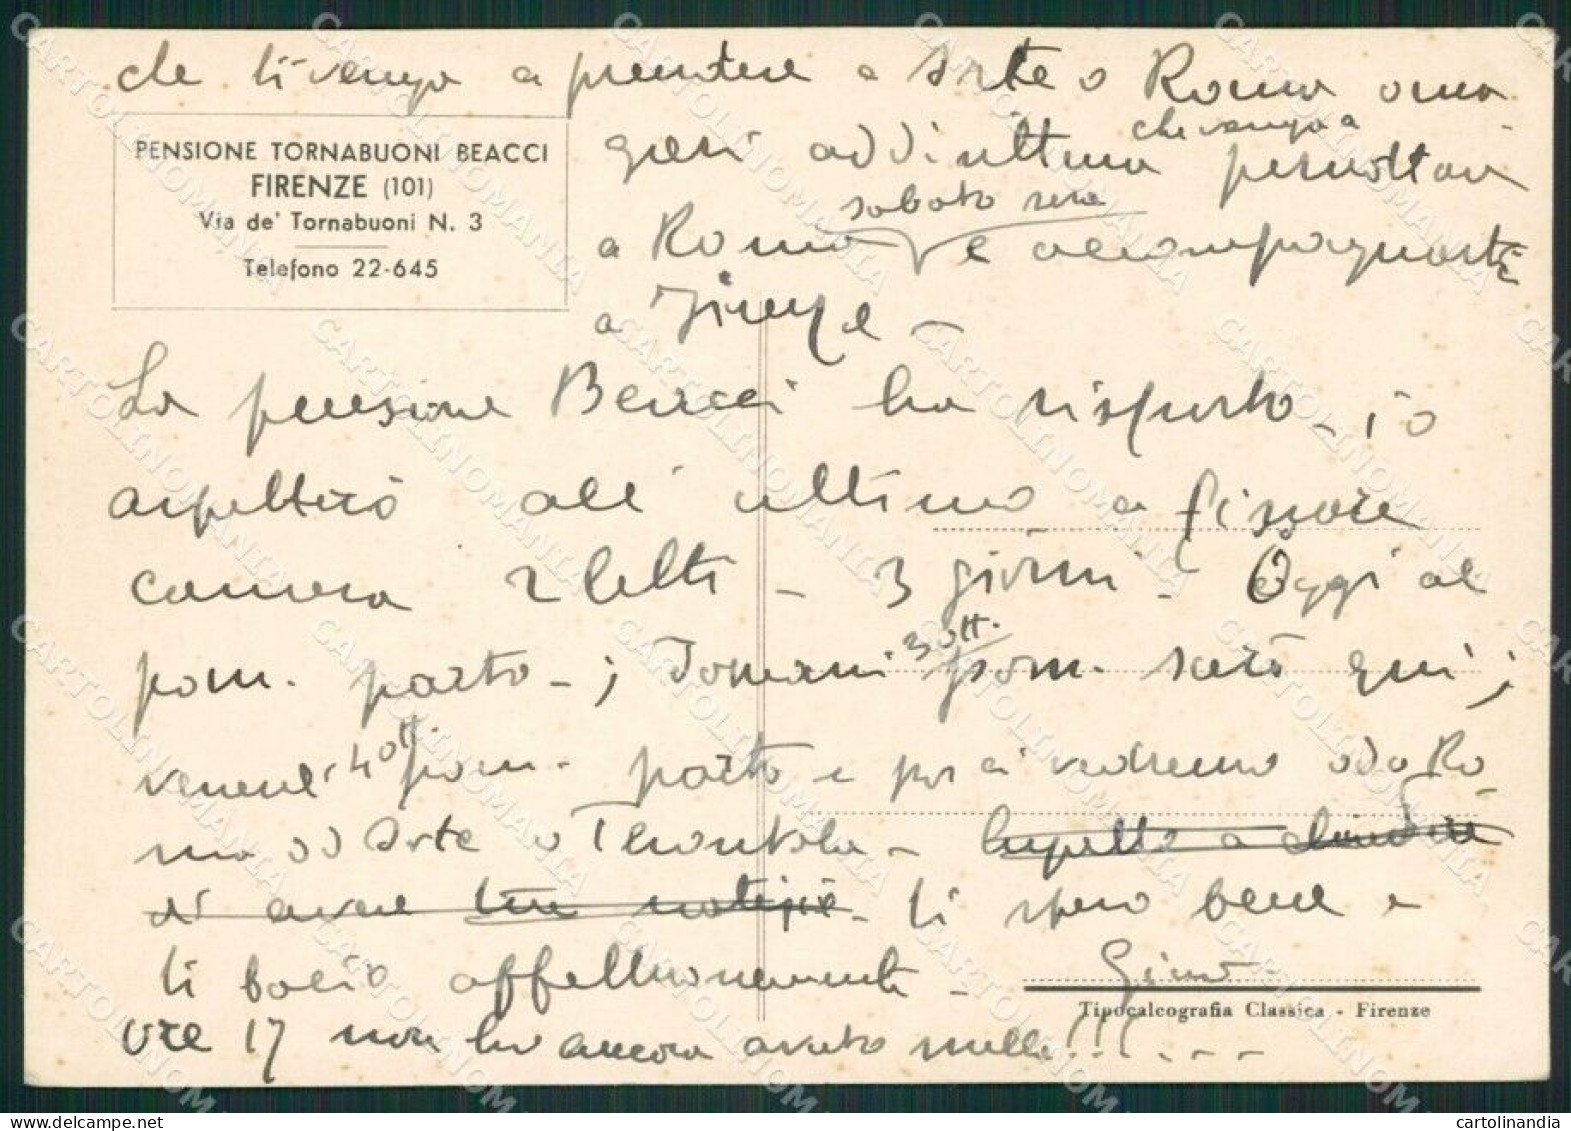 che ti venga a prendere a Orte o Roma oma
gari addirittura che venga a pernottare
a Roma sabato sera e accompagnarti
a Firenze -
PENSIONE TORNABUONI BEACCI
FIRENZE (101)
Via de' Tornabuoni N. 3
Telefono 22-645
La pensione Beacci ha risposto - io
aspetterò all'ultimo a fissare
camera 2 letti - 3 giorni - Oggi al
pom. parto - ; domani 3 ott. pom. sarò qui ;
venerd' 4 ott pom. parto e poi ci vedremo o da Ro
ma od Orte o Terontola - Aspetto a
di avere tue notizie - ti spero bene e
ti bacio affettuosamente - Gino
ore 17 non ho ancora avuto nulla!!!...---
Tipocalcografia Classica - Firenze
CARTOLINOMANIA
cartolinandia